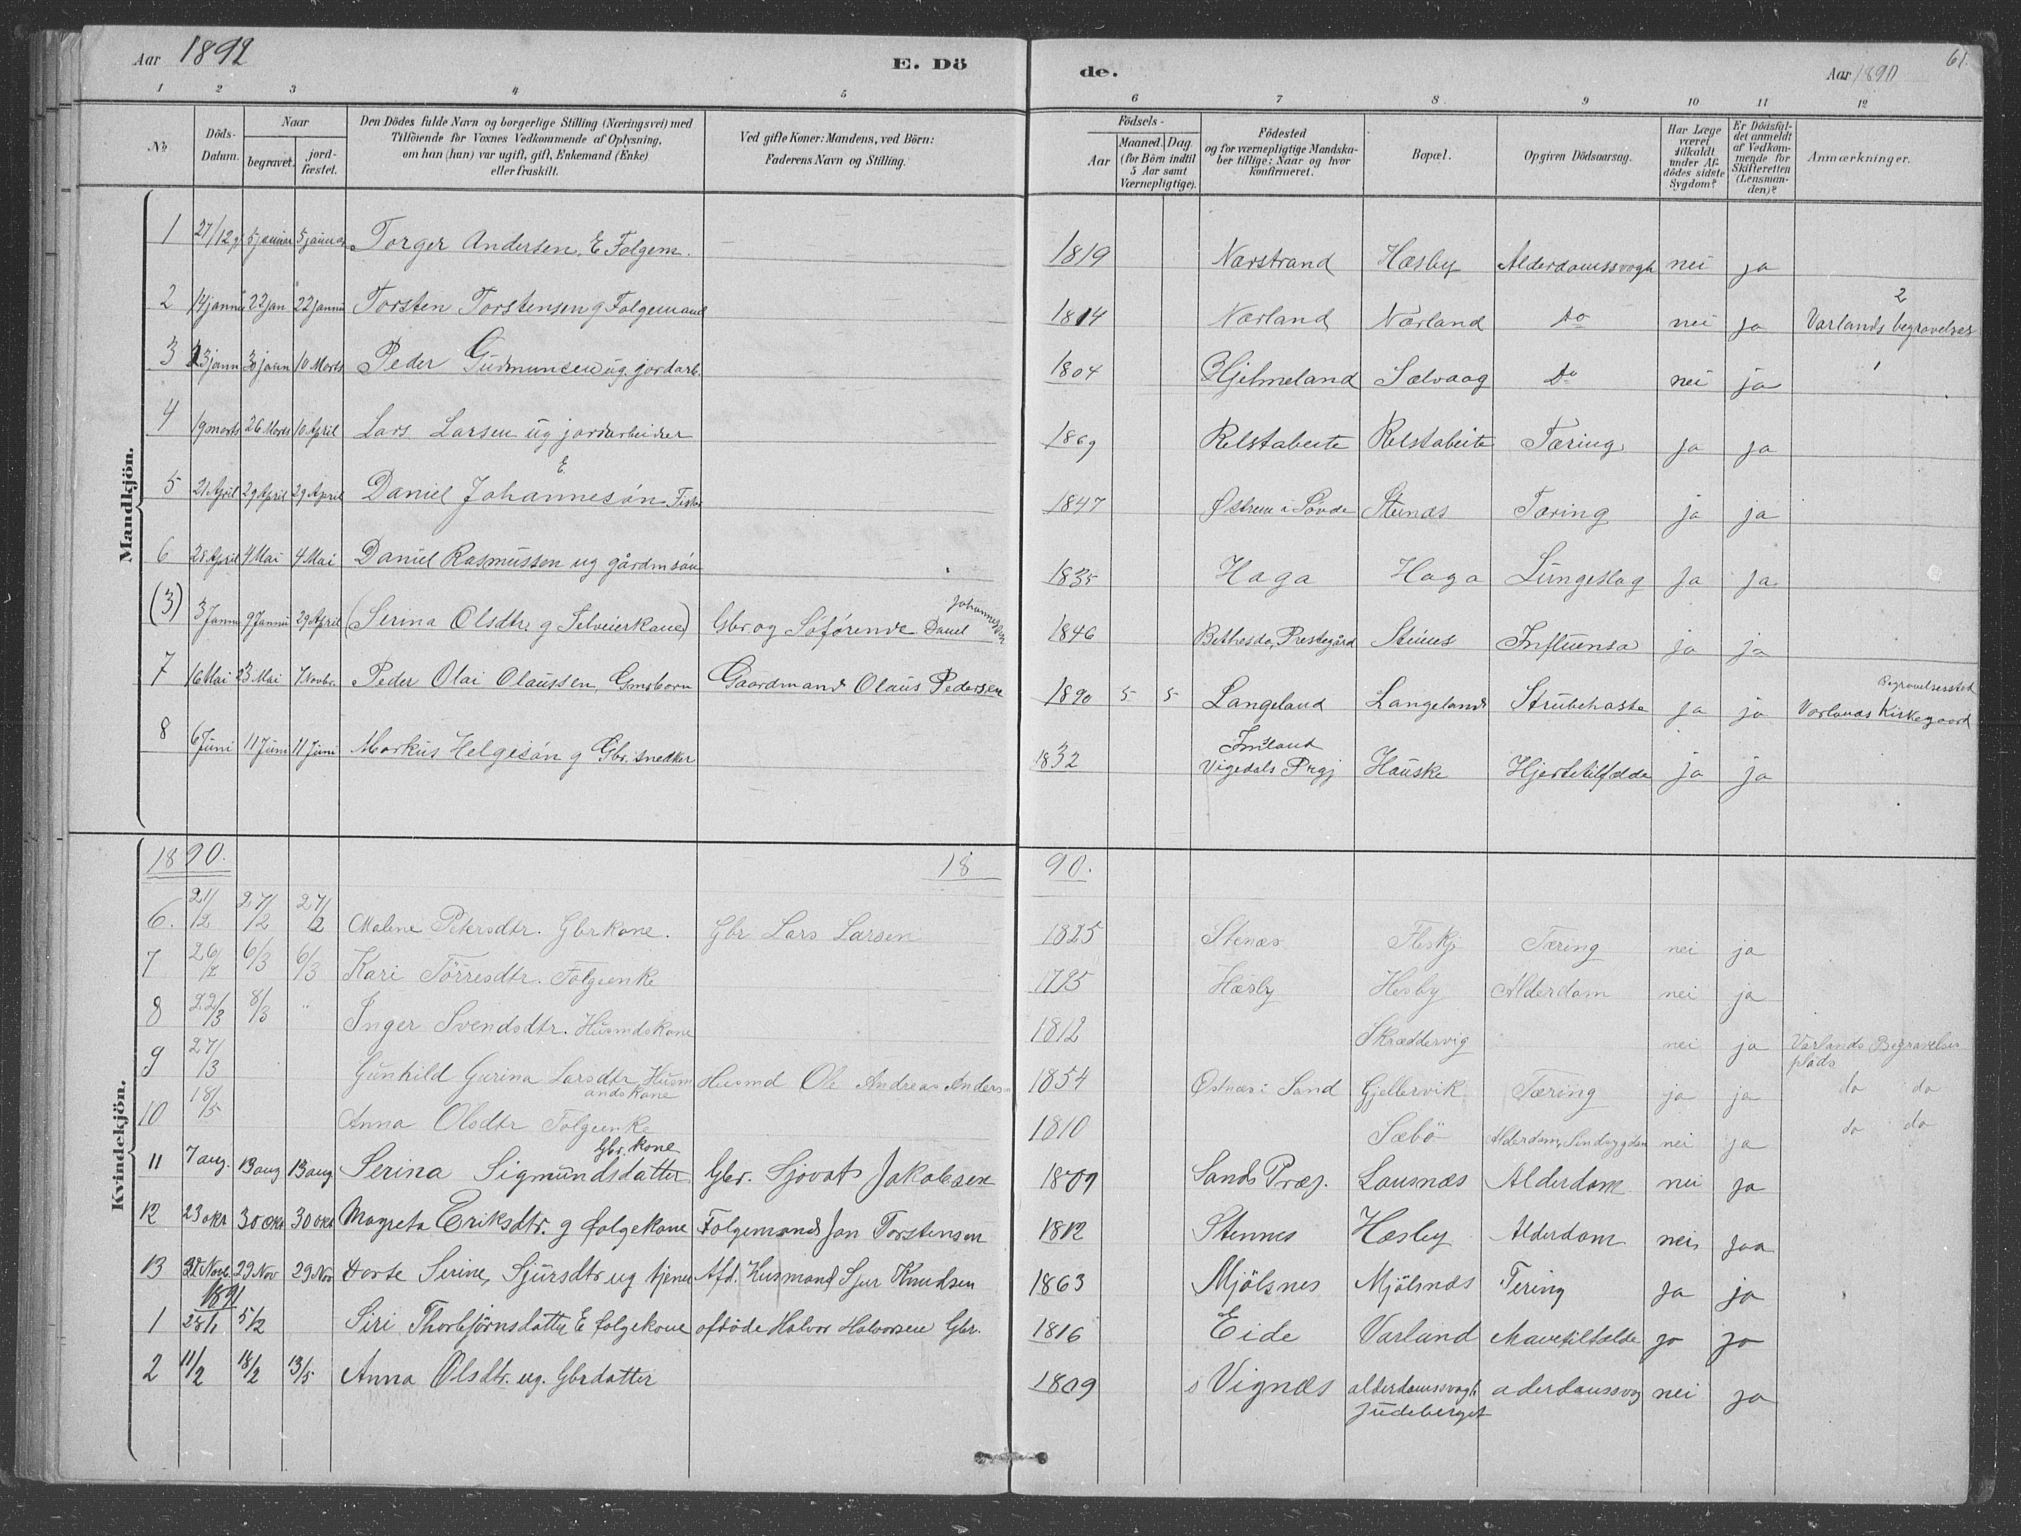 Aar 1892 E. Dö de. Aar 1890 61.
1 2 3 4 5 6 7 8 9 10 11 12
No Döds-Datum. Naar begravet. jordfæstet. Den Dödes fulde Navn og borgerlige Stilling (Næringsvei) med Tilföiende for Voxnes Vedkommende af Oplysning, om han (hun) var ugift, gift, Enkemand (Enke) eller fraskilt. Ved gifte Koner: Mandens, ved Börn: Faderens Navn og Stilling. Födsels- Aar Maaned. Dag. (for Börn indtil 5 Aar samt Værnepligtige). Födested og for værnepligtige Mandskaber tillige: Naar og hvor konfirmeret. Bopæl. Opgiven Dödsaarsag. Har Læge været tilkaldt under Afdödes sidste Sygdom? Er Dödsfaldet anmeldt af Vedkommende for Skifteretten (Lensmanden)? Anmærkninger.
Mandkjön.
1 27/12 5 januar 5 januar Torger Andersen, E Folgem. 1819 Narstrand Hæsby Alderdomssvagh nei ja
2 14 janu 22 jan 22 janu Torsten Torstensen g Folgemand 1814 Nærland Nærland Do nei ja Varlands begravelses 2
3 23 jann 30 jann 10 Marts Peder Gudmunsen ug. jordarb. 1804 Hjelmeland Sælvaag Do nei ja 1
4 19 marts 26 Marts 10 April Lars Larsen ug jordarbeider 1869 Relstabeite Relstabeite Tæring ja ja
5 21 April 29 April 29 April Daniel Johannesön E. 1847 Østrem i Søvde Stenæs Tæring ja ja
6 28 April 4 Mai 4 Mai Daniel Rasmussen ug gårdmsön 1835 Haga Haga Lungeslag ja ja
(3) 3 Janu 9 Janu 29 April (Serina Olsdtr g Selveierkone) Gbr og Söförende Daniel Johannessen 1846 Bethesda, Prestegård Steines Influensa ja ja
7 16 Mai 23 Mai 7 Novbr. Peder Olai Olaussen, Gmsborn Gaardmand Olaus Pedersen 1890 5 5 Langeland Langeland Strubehoste ja ja Begravelsessted Varlands Kirkegaard
8 6 Juni 11 Juni 11 Juni Markus Helgesön g Gbr. snedker 1832 Imsland Vigedals Prgj Hauske Hjertetilfælde ja ja
Kvindekjön.
1890. 18 90.
6. 21/2 27/2 27/2 Malene Petersdtr. Gbrkone. Gbr Lars Larsen 1825 Stenæs Tæring nei ja
7 26/2 6/3 6/3 Kari Törresdtr. Folgeenke 1795 Hæsby Hesby Alderdom nei ja
8 22/3 8/3 " Inger Svendsdtr. Husmdskone 1812 Skræddervig nei ja Varlands Begravelsesplads
9 27/3 Gunhild Gurina Larsdtr Husmandskone Husmd Ole Andreas Anders 1854 Østnæs i Sand Gjellervik Tæring ja ja do do
10 18/5 Anna Olsdtr Folgeenke 1810 Sæbö Alderdom, nei ja do do
11 7 aug. 13 aug 13 aug Serina Sigmundsdatter Gbr. kone Gbr. Sjovat Jakobsen 1809 Sands Præj. Lausnæs Alderdom nei ja
12 23 okt 30 okt 30 okt Magreta Eriksdtr. g folgekone Folgemand Jan Torstensen 1812 Stennes Hæsby Alderdom nei jaa
13 22 Novb. 29 Nov 29 Nov Dorte Serine, Sjursdtr ug tjener Afd. Husmand Sjur Knudsen 1863 Mjölsnes Mjölsnæs Tering ja ja
1891
1 28/1 5/2 Siri Thorbjörnsdatter E folgekone afdöde Halvor Halvorsen Gbr. 1816 Eide Varland Mavetilfælde ja ja
2 11/2 18/2 13/5 Anna Olsdtr. ug. Gbrdatter 1809 Vignæs alderdomssvagh Judeberget aderdomssvag nei ja